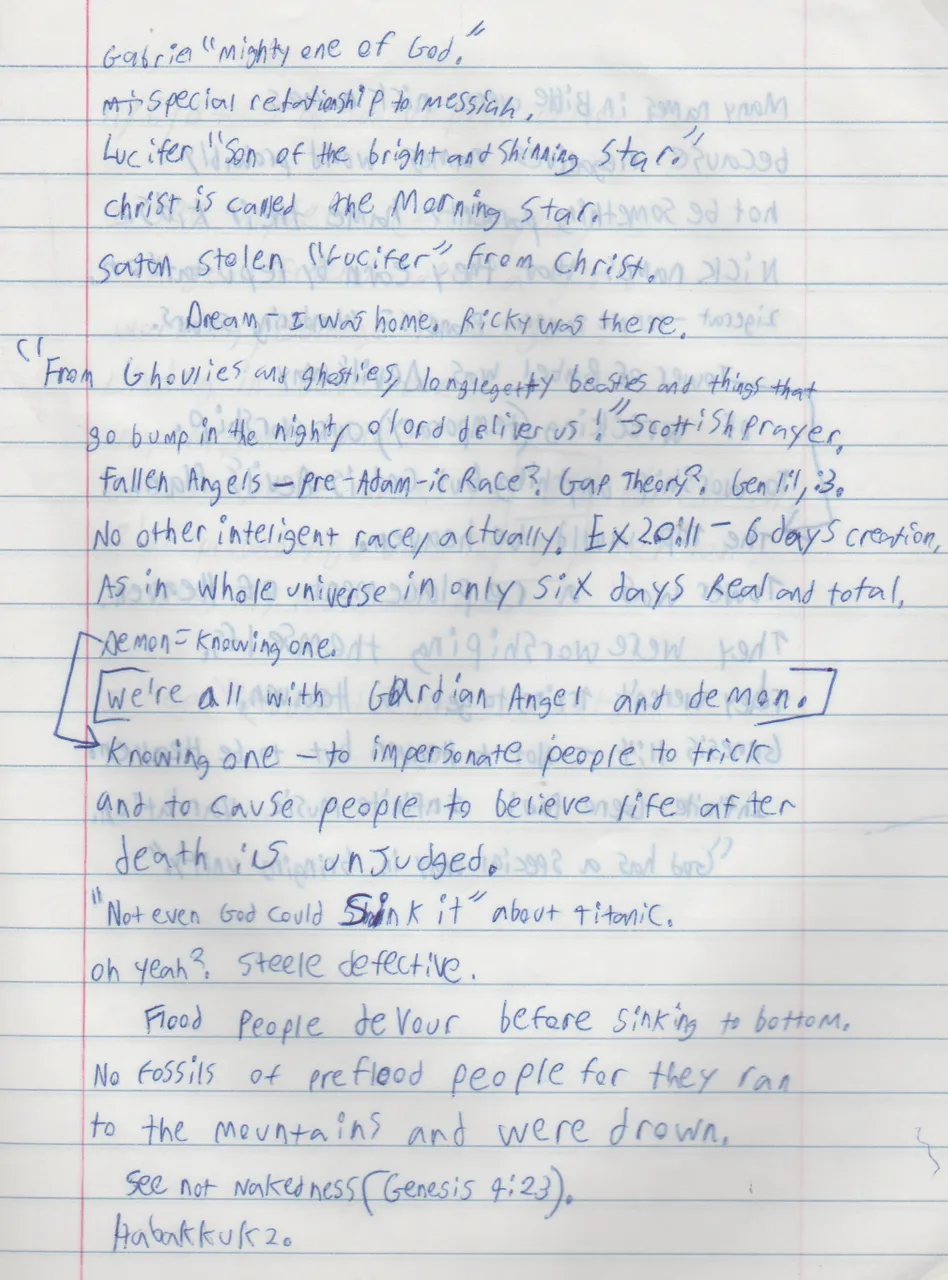 Gabriel "mighty one of God."
special relationship to messiah.
Lucifer "Son of the bright and Shinning Star."
christ is called the Morning Star.
Satan stolen "Lucifer" From Christ.
Dream - I was home. Ricky was there.
"From Ghoulies and ghosties, longlegetty beasties and things that
go bump in the nighty o lord deliver us!" - Scottish Prayer.
Fallen Angels - Pre-Adam-ic Race? Gap Theory? Gen 1:1, :3.
No other inteligent race, actually. Ex 20:11 - 6 days creation,
As in whole universe in only six days Real and total.
Demon = Knowing one.
[We're all with Gardian Angel and demon.]
Knowing one - to impersonate people to trick
and to cause people to believe life after
death is unjudged.
"Not even God could Sink it" about titanic.
oh yeah? Steele defective.
Flood People devour before sinking to bottom.
No fossils of preflood people for they ran
to the mountains and were drown.
See not Nakedness (Genesis 9:23).
Habakkuk 2.